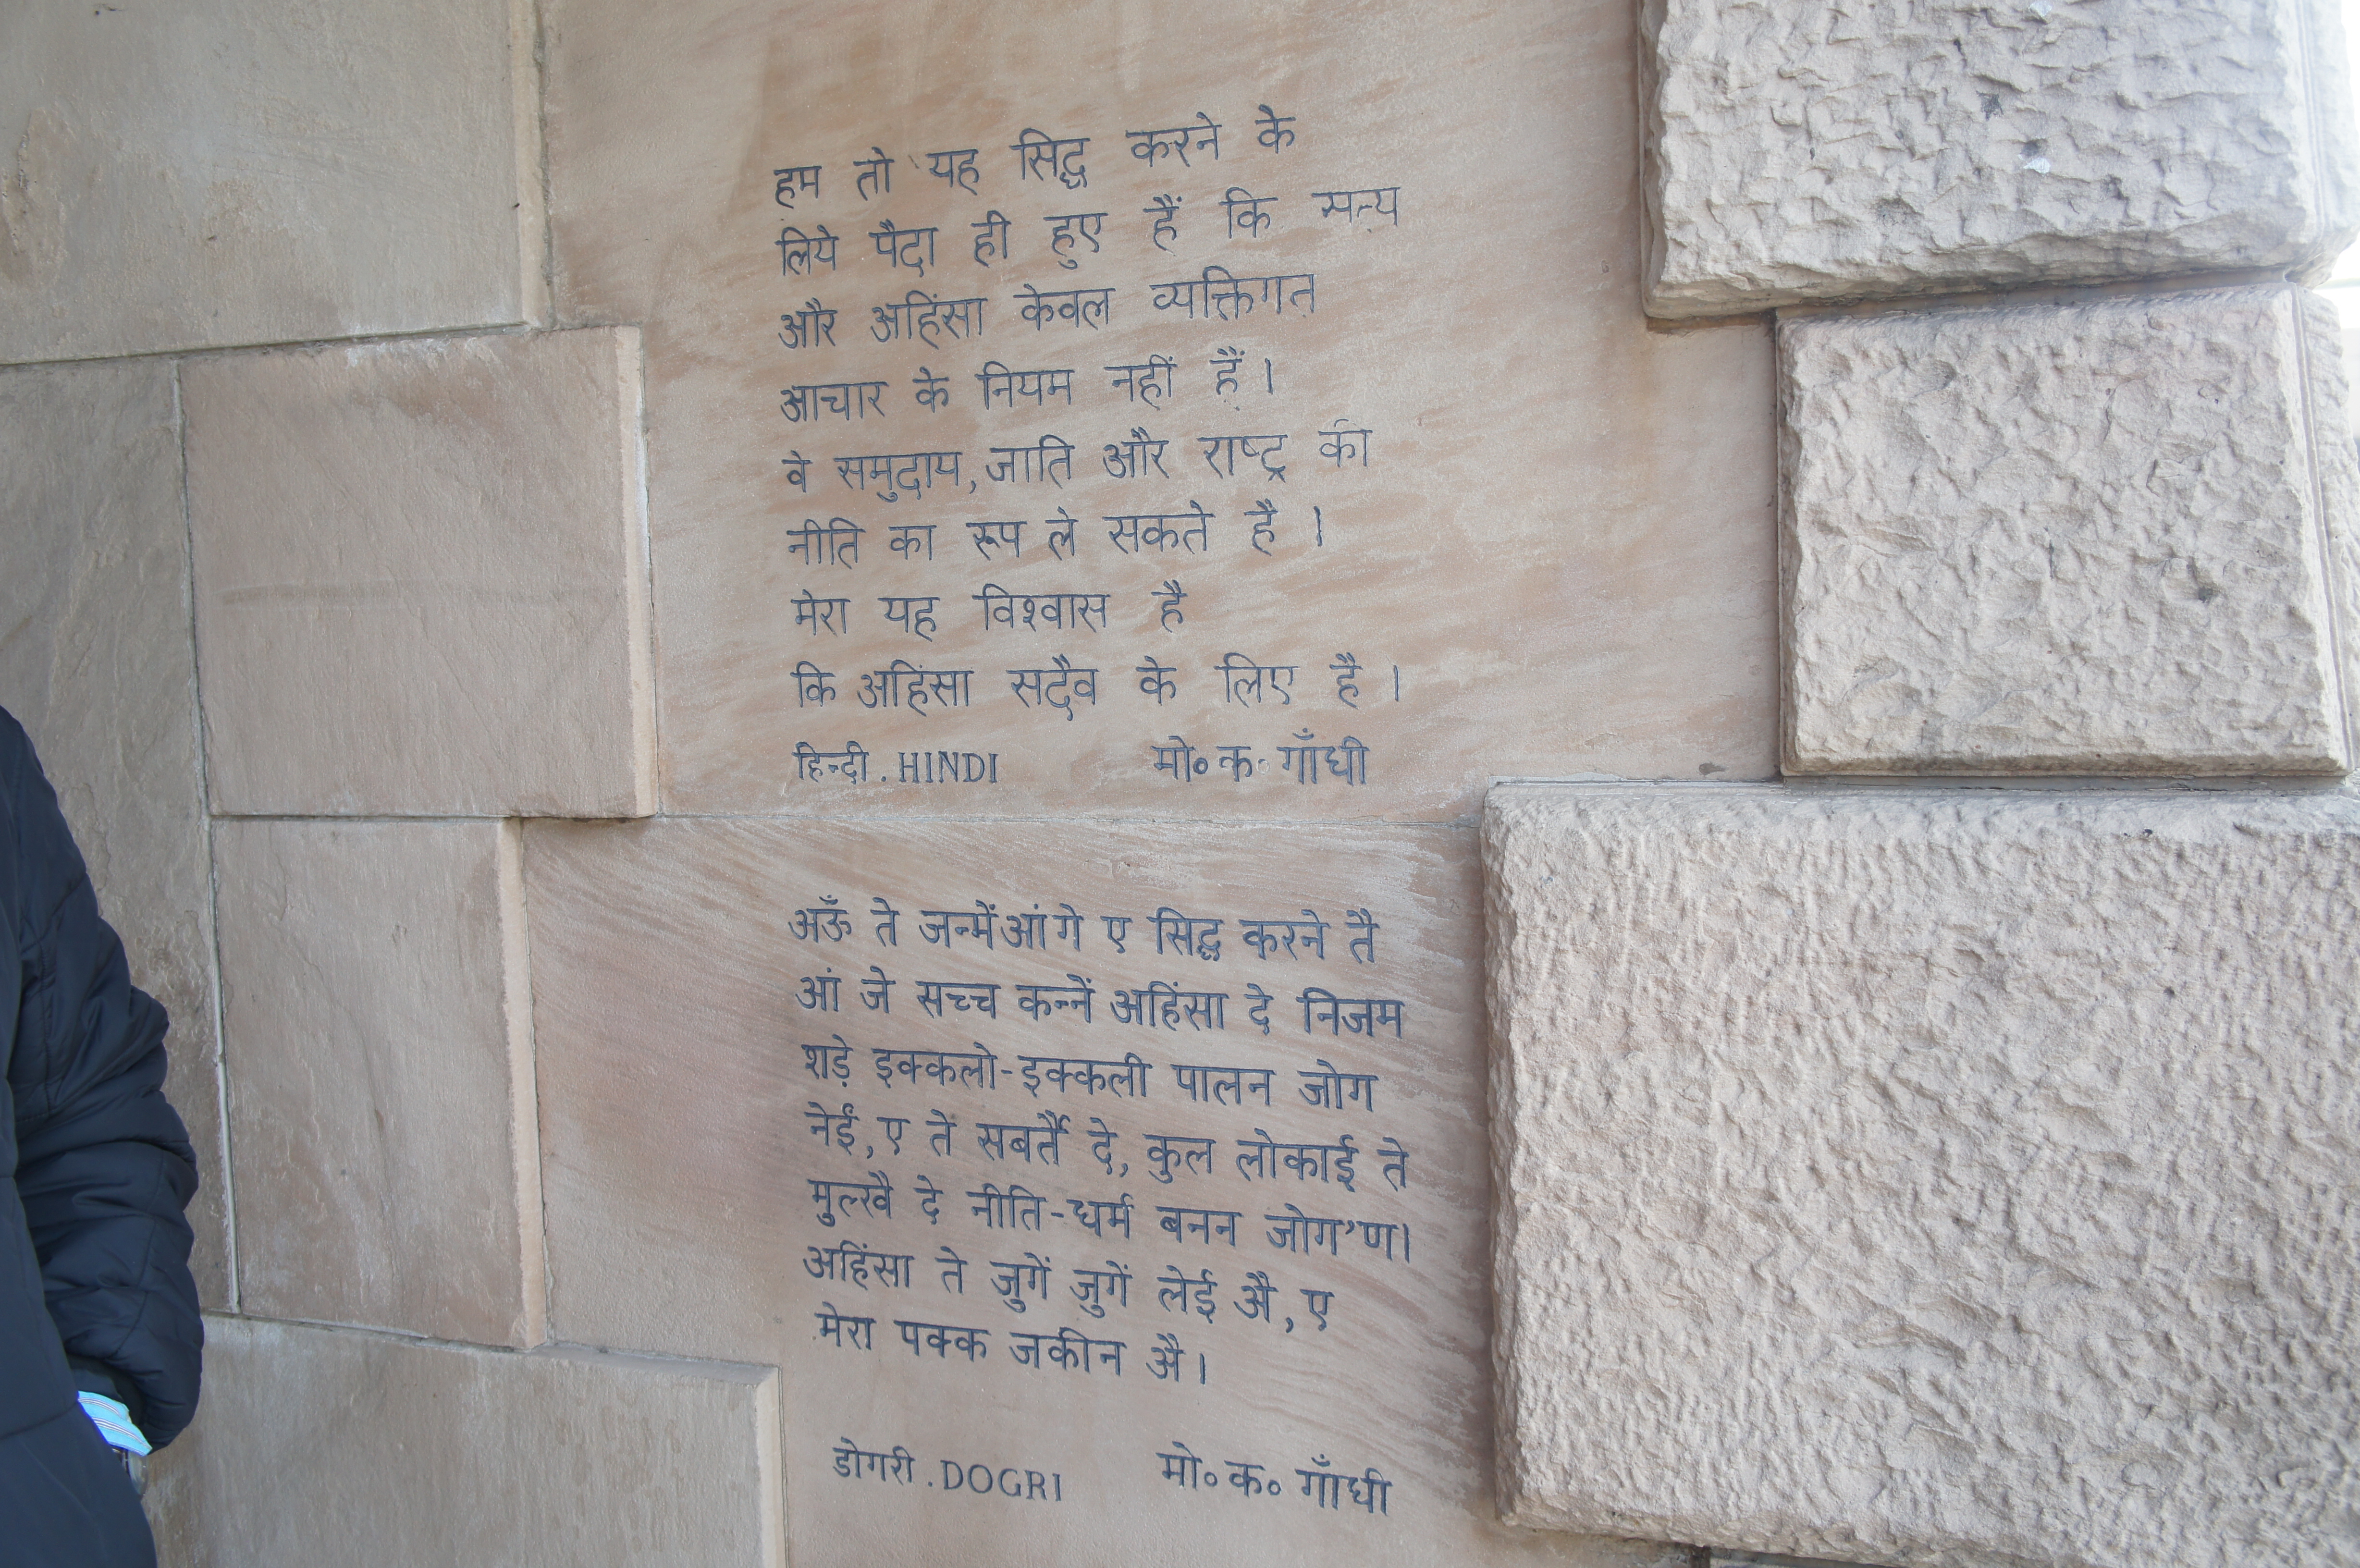 हम तो यह सिद्ध करने के
लिये पैदा ही हुए हैं कि सत्य
और अहिंसा केवल व्यक्तिगत
आचार के नियम नहीं हैं।
वे समुदाय, जाति और राष्ट्र की
नीति का रूप ले सकते है।
मेरा यह विश्वास है
कि अहिंसा सदैव के लिए है।
हिन्दी . HINDI मो॰ क॰ गाँधी
अऊँ ते जन्मेंआं गे ए सिद्ध करने तै
आं जे सच्च कन्नें अहिंसा दे निजम
शड़े इक्कलो-इक्कली पालन जोग
नेईं, ए ते सबर्तै दे, कुल लोकाई ते
मुल्खै दे नीति-धर्म बनन जोग'ण।
अहिंसा ते जुगें जुगें लेई औ, ए
मेरा पक्क जकीन औ।
डोगरी . DOGRI मो॰ क॰ गाँधी